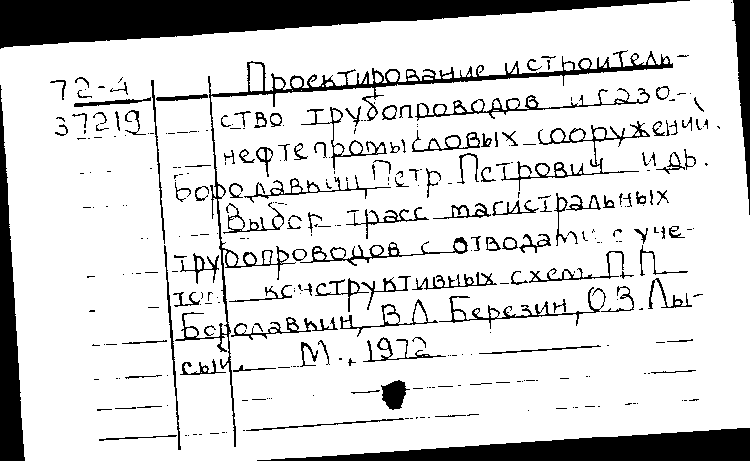 72-4 Проектирование и строитель-
37219 ство трубопроводов и газо-
нефтепромысловых сооружений.
Бородавкин, Петр Петрович и др.
Выбор трасс магистральных
трубопроводов с отводами с уче-
том конструктивных схем. П.П.
Бородавкин, В.Л. Березин, О.З. Лы-
сый. М., 1972